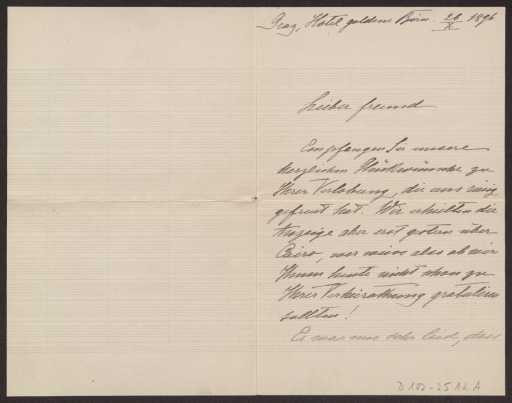 Graz, Hotel goldene Birn. 26/X 1896
Lieber Freund
Empfangen Sie unsere
herzlichen Glückwünsche zu
Ihrer Verlobung, die uns riesig
gefreut hat. Wir erhielten die
Anzeige aber erst gestern über
Cairo, war mir als ob wir
Ihnen heute nicht schon zu
Ihrer Verheirathung gratuliren
sollten!
Es war uns sehr leid, dass
D 102-2512 A